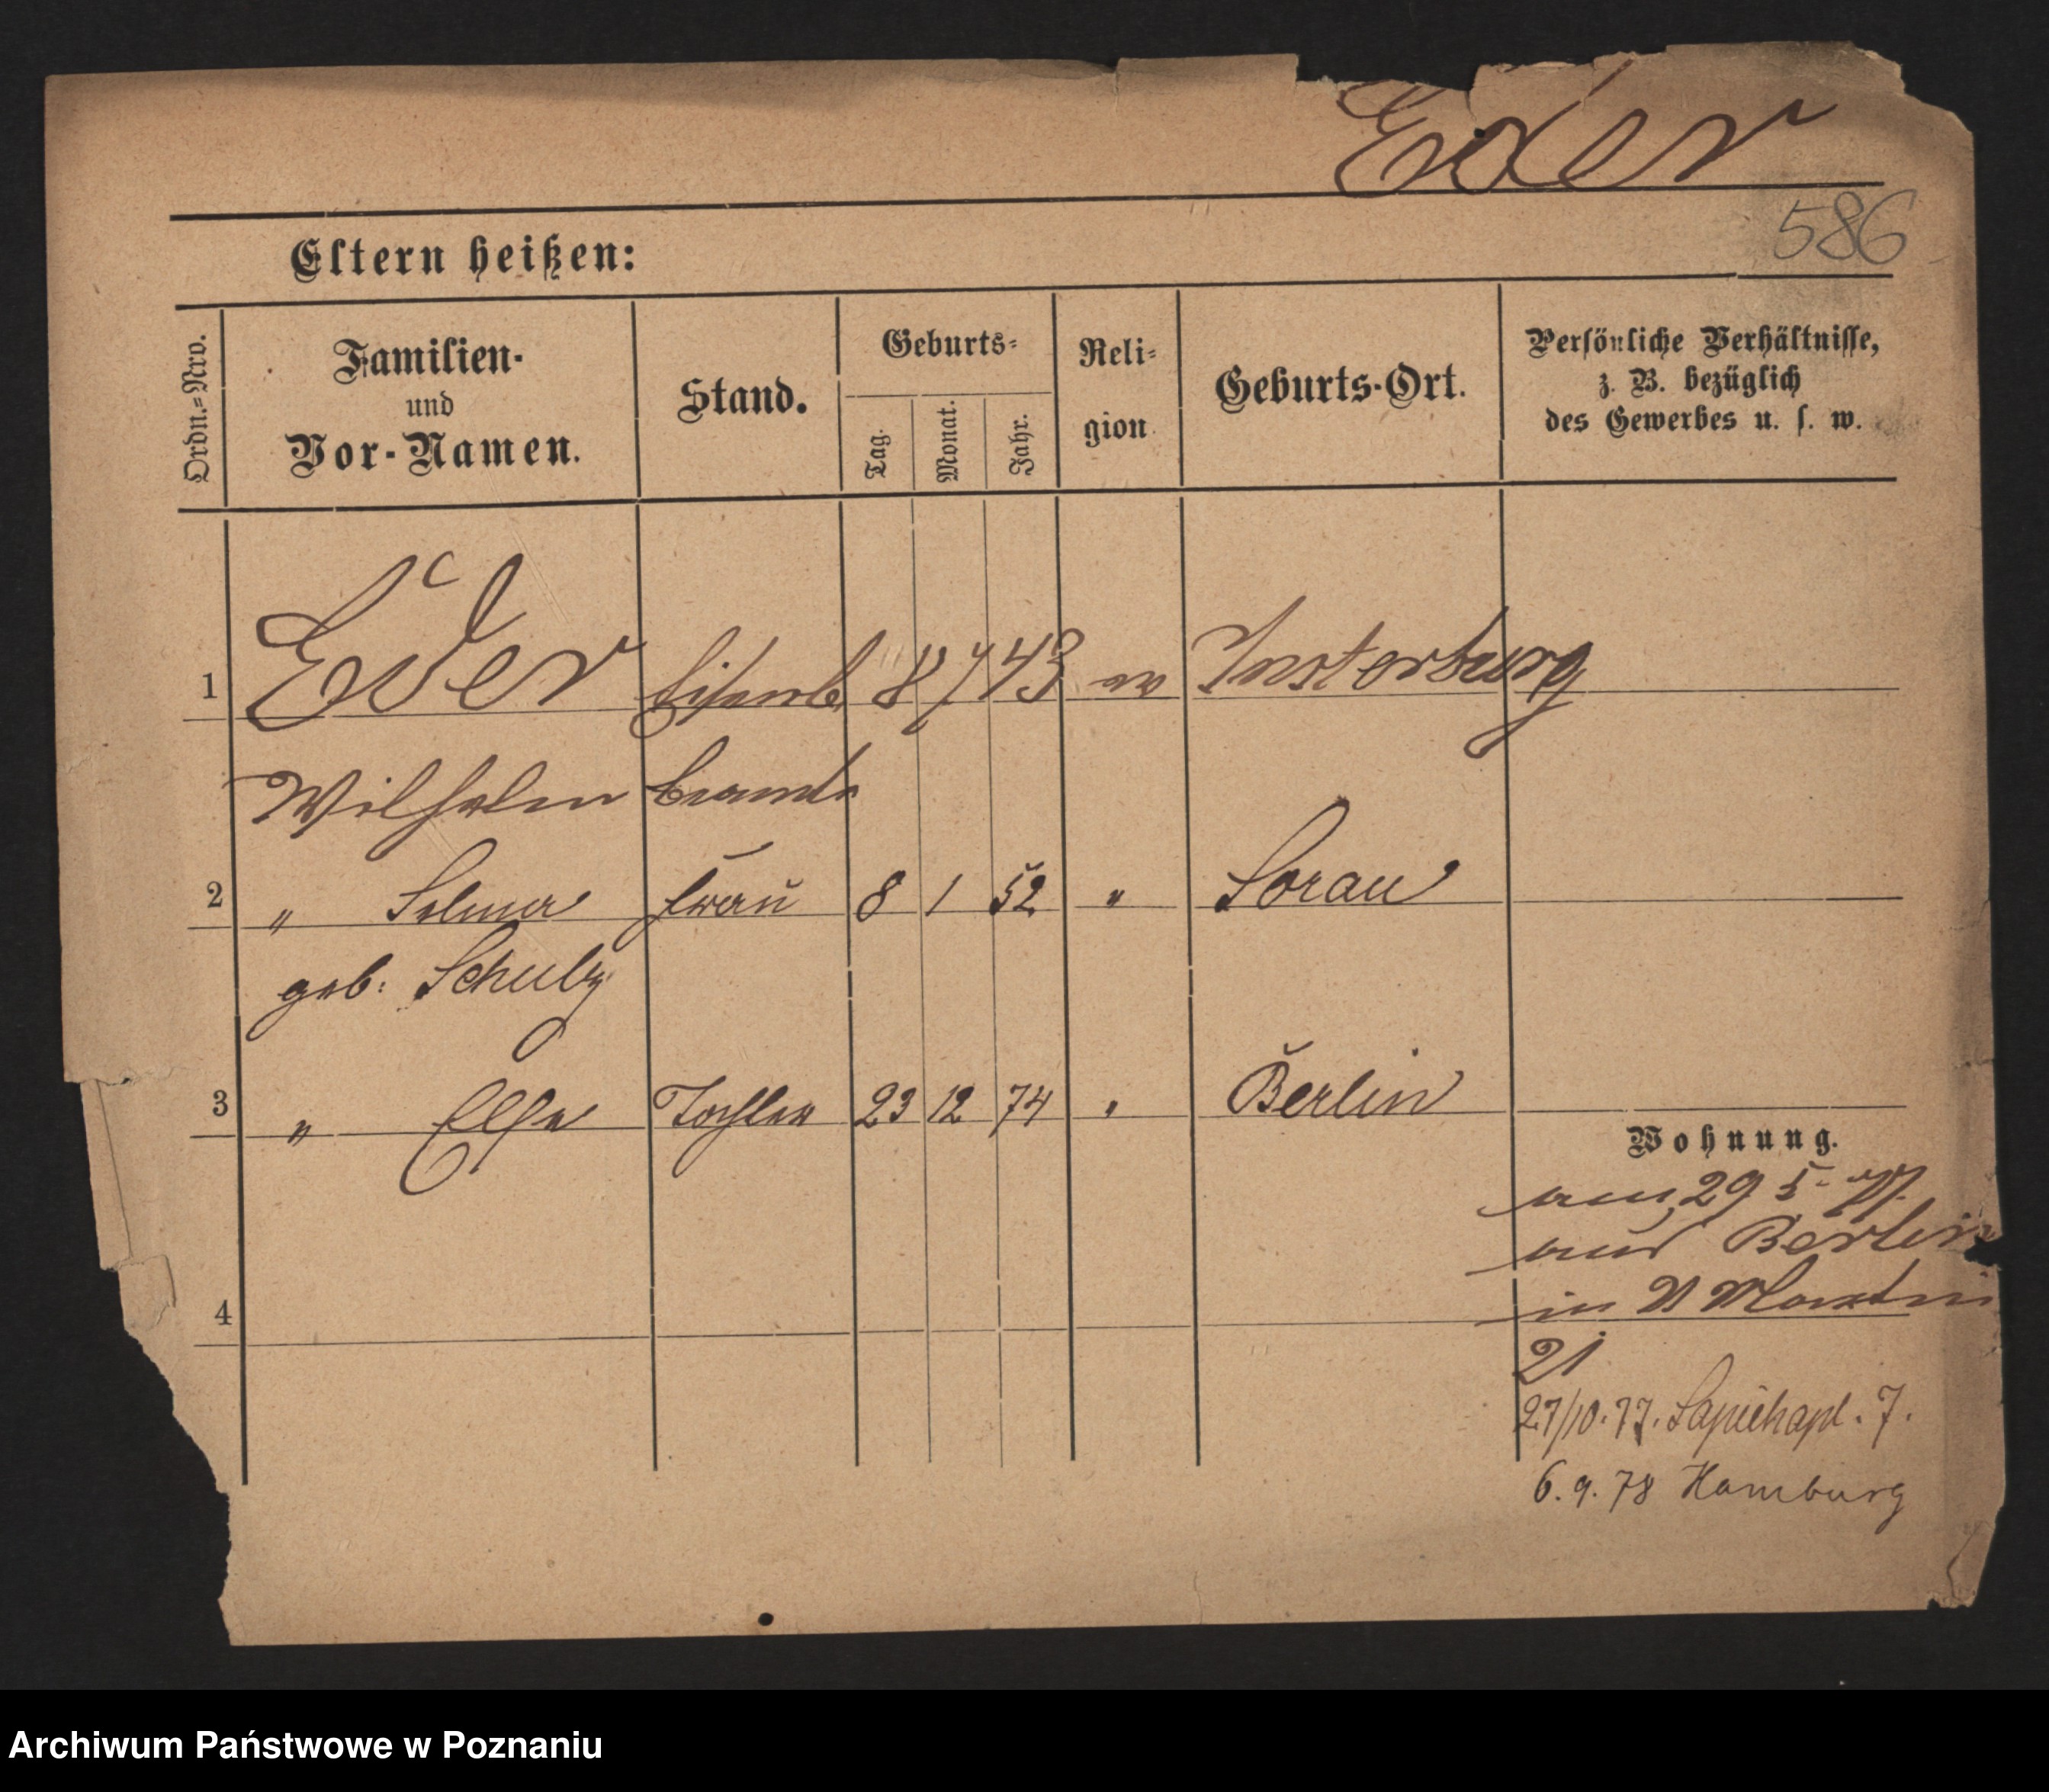 Eder
586
Eltern heißen:
Ordn.-Nro.
Familien- und Vor-Namen.
Stand.
Geburts-
Tag. Monat. Jahr.
Reli-gion
Geburts-Ort.
Persönliche Verhältnisse,
z. B. bezüglich
des Gewerbes u. s. w.
1 Eder Eisenb. 8 7 43 ev Insterburg
Wilhelm beamte
2 " Selma Frau 8 1 52 " Sorau
geb. Schulz
3 " Else Tochter 23 12 74 " Berlin
Wohnung.
am 29 5 77
aus Berlin
4
in Martin
21
27/10.77. Sapiehapl. 7.
6.9.78 Hamburg
Archiwum Państwowe w Poznaniu